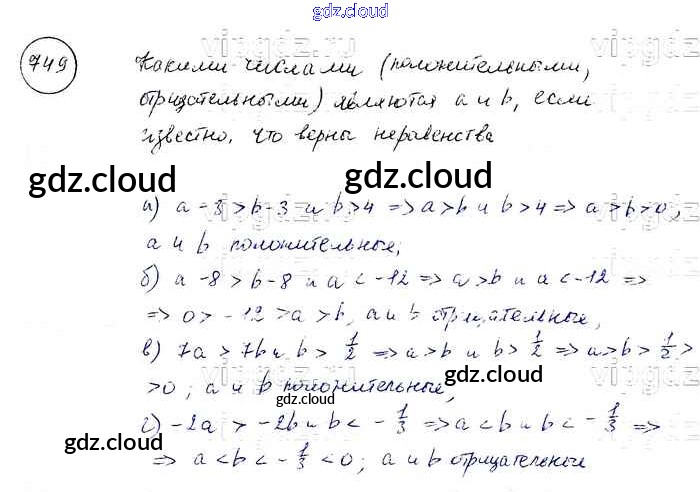 gdz.cloud
749
Какими числами (положительными,
отрицательными) являются a и b, если
известно, что верны неравенства
gdz.cloud gdz.cloud
а) a-3>b-3 и b>4 => a>b и b>4 => a>b>0,
a и b положительные;
б) a-8>b-8 и a<-12 => a>b и a<-12 =>
=> 0>-12>a>b, a и b отрицательные,
в) 7a>7b и b>1/2 => a>b и b>1/2 => a>b>1/2>
>0; a и b положительные,
gdz.cloud gdz.cloud
г) -2a>-2b и b<-1/3 => a<b и b<-1/3 =>
gdz.cloud
=> a<b<-1/3<0; a и b отрицательные
gdz.cloud